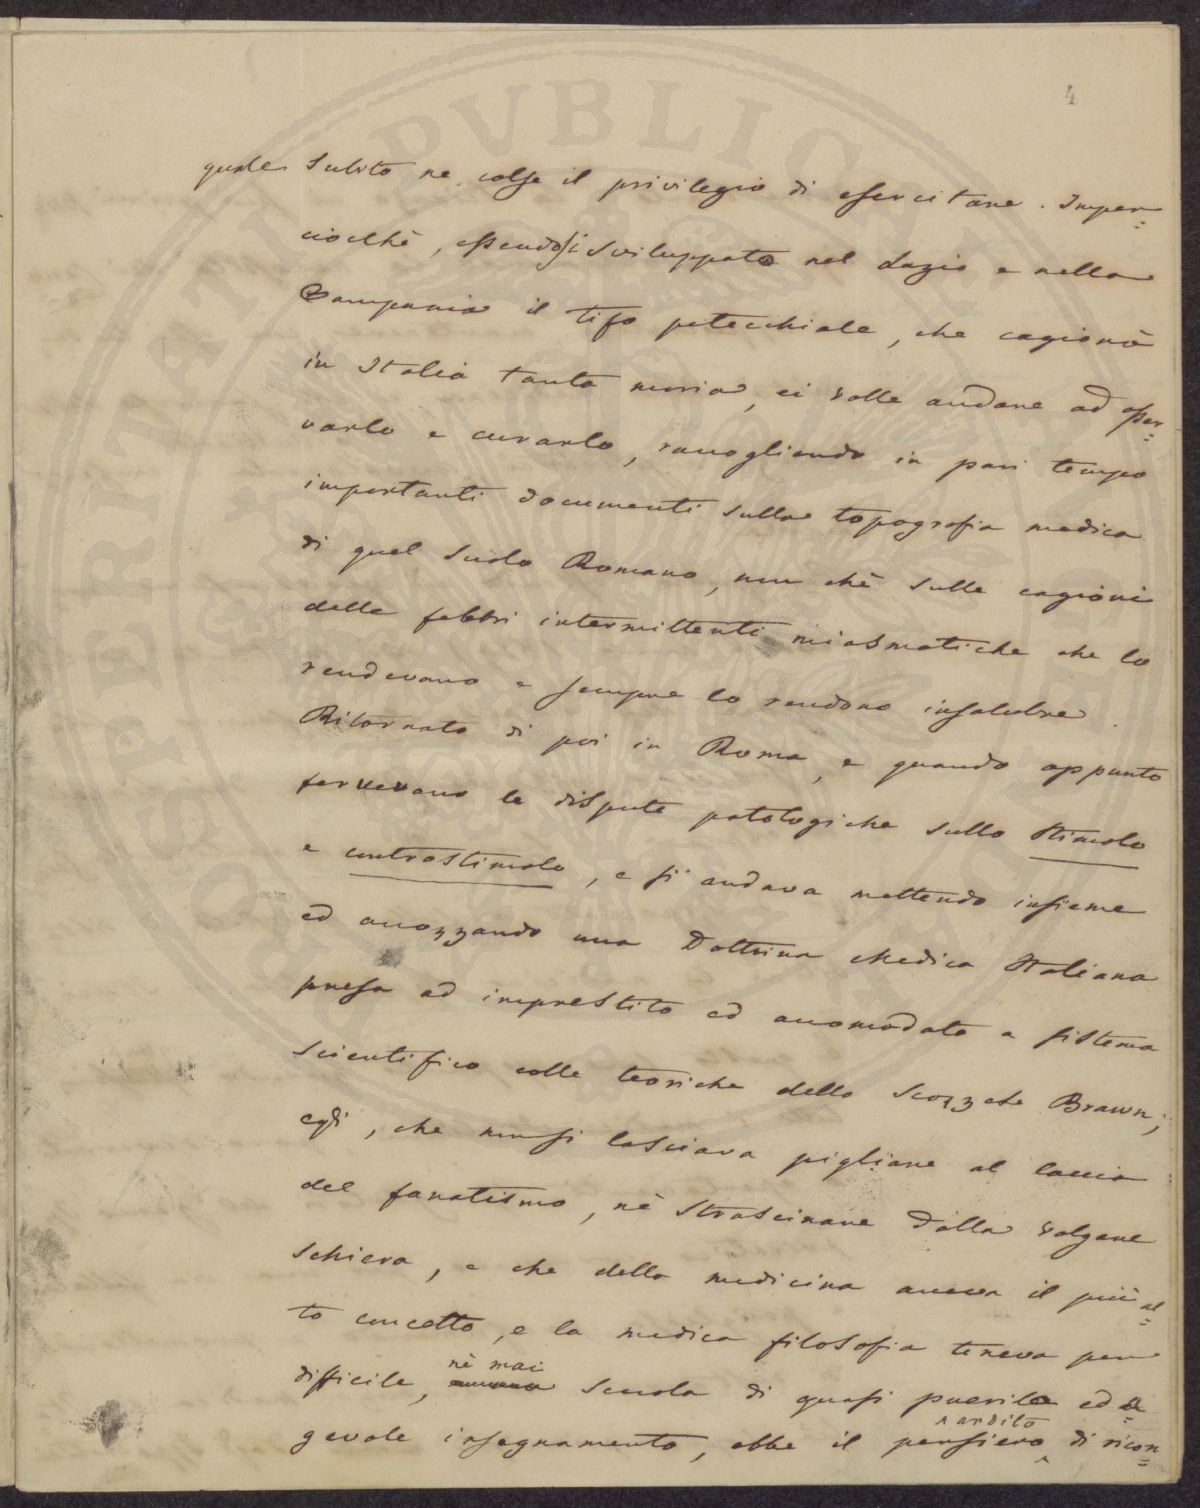 4
quale subito ne colse il privilegio di esercitare. Imper=
ciocchè, essendosi sviluppato nel Lazio e nella
Campania il tifo petecchiale, che cagionò
in Italia tanta moria, ei volle andare ad osser=
varlo e curarlo, raccogliendo in pari tempo
importanti documenti sulla topografia medica
di quel suolo Romano, non chè sulle cagioni
delle febbri intermittenti miasmatiche che lo
rendevano e sempre lo rendono insalubre.
Ritornato di poi in Roma, e quando appunto
fervevano le dispute patologiche sullo stimolo
e controstimolo, e si andava mettendo insieme
ed accozzando una Dottrina Medica Italiana
presa ad imprestito ed accomodata a sistema
scientifico colle teoriche dello Scozzese Brawn;
egli, che non si lasciava pigliare al laccio
del fanatismo, nè strascinare dalla volgare
schiera, e che della medicina aveva il più al=
to concetto, e la medica filosofia teneva per
difficile, nè mai scuola di quasi puerile ed a=
gevole insegnamento, ebbe il pensiero ardito di ricon=